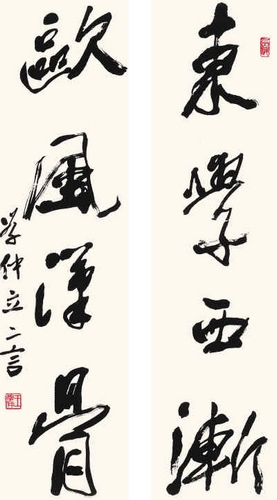 東學西漸
歐風漢骨
學仲立二言